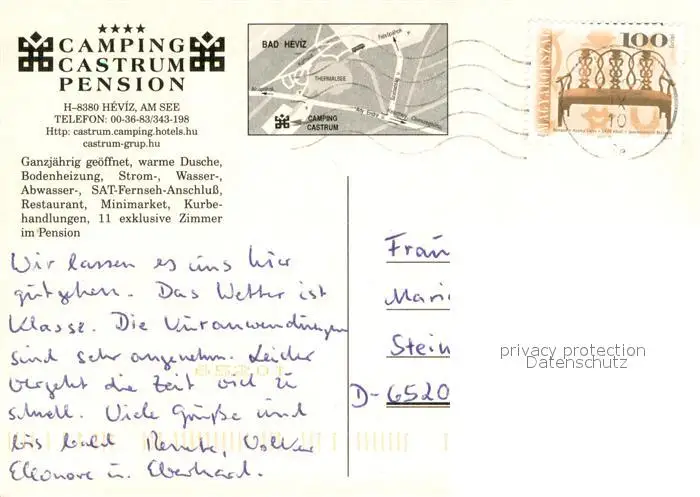 CAMPING
CASTRUM
PENSION
H–8380 HÉVÍZ, AM SEE
TELEFON: 00-36-83/343-198
Http: castrum.camping.hotels.hu
castrum-grup.hu
Ganzjährig geöffnet, warme Dusche,
Bodenheizung, Strom-, Wasser-,
Abwasser-, SAT-Fernseh-Anschluß,
Restaurant, Minimarket, Kurbe-
handlungen, 11 exklusive Zimmer
im Pension
BAD HÉVÍZ
THERMALSEE
CAMPING
CASTRUM
MAGYARORSZÁG
100
Wir lassen es uns hier
gutgehen. Das Wetter ist
Klasse. Die Kuranwendungen
sind sehr angenehm. Leider
vergeht die Zeit viel zu
schnell. Viele Grüße und
bis bald Renate, Volker
Eleonore u. Eberhard.
Frau
Mari
Stein
D-6520
privacy protection
Datenschutz